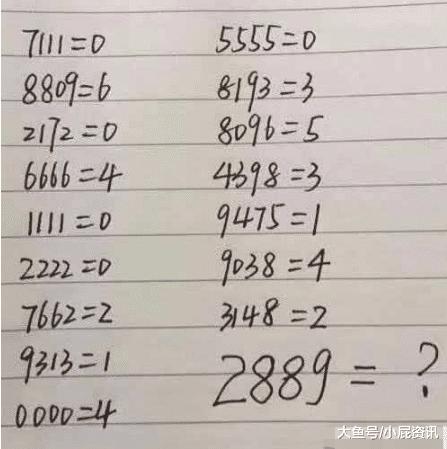 7111=0
8809=6
2172=0
6666=4
1111=0
2222=0
7662=2
9313=1
0000=4
5555=0
8193=3
8096=5
4398=3
9475=1
9038=4
3148=2
2889=?
大鱼号/小屁资讯